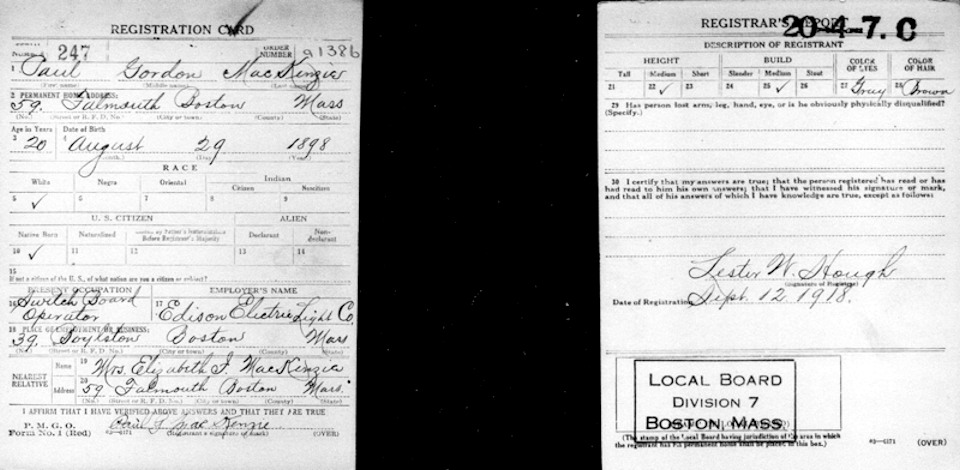 REGISTRATION CARD
SERIAL NUMBER 247 ORDER NUMBER a1386
1 Paul Gordon MacKenzie
(First name) (Middle name) (Last name)
2 PERMANENT HOME ADDRESS:
59. Falmouth Boston Mass
(No.) (Street or R. F. D. No.) (City or town) (County) (State)
Age in Years Date of Birth
3 20 4 August 29 1898
(Month.) (Day.) (Year.)
RACE
White Negro Oriental Indian
Citizen Noncitizen
5 ✓ 6 7 8 9
U. S. CITIZEN ALIEN
Native Born Naturalized Citizen by Father's Naturalization Before Registrant's Majority Declarant Non-declarant
10 ✓ 11 12 13 14
15
If not a citizen of the U. S., of what nation are you a citizen or subject?
PRESENT OCCUPATION EMPLOYER'S NAME
16 Switch Board Operator 17 Edison Electric Light Co.
18 PLACE OF EMPLOYMENT OR BUSINESS:
39. Boylston Boston Mass
(No.) (Street or R. F. D. No.) (City or town) (County) (State)
NEAREST RELATIVE
Name 19 Mrs. Elizabeth J. MacKenzie
Address 20 59 Falmouth Boston Mass.
(No.) (Street or R. F. D. No.) (City or town) (County) (State)
I AFFIRM THAT I HAVE VERIFIED ABOVE ANSWERS AND THAT THEY ARE TRUE
P. M. G. O.
Form No. 1 (Red) 03-6171 Paul G. MacKenzie
(Registrant's signature or mark) (OVER)
REGISTRAR'S REPORT
20-4-7. C
DESCRIPTION OF REGISTRANT
HEIGHT BUILD COLOR OF EYES COLOR OF HAIR
Tall Medium Short Slender Medium Stout
21 22 ✓ 23 24 25 ✓ 26 27 Gray 28 Brown
29 Has person lost arm, leg, hand, eye, or is he obviously physically disqualified?
(Specify.)
30 I certify that my answers are true; that the person registered has read or has
had read to him his own answers; that I have witnessed his signature or mark,
and that all of his answers of which I have knowledge are true, except as follows:
Lester W. Hough
(Signature of Registrar)
Date of Registration Sept. 12 1918.
LOCAL BOARD
DIVISION 7
BOSTON, MASS.
(The stamp of the Local Board having jurisdiction of the area in which
the registrant has his permanent home shall be placed in this box.)
03-6171 (OVER)